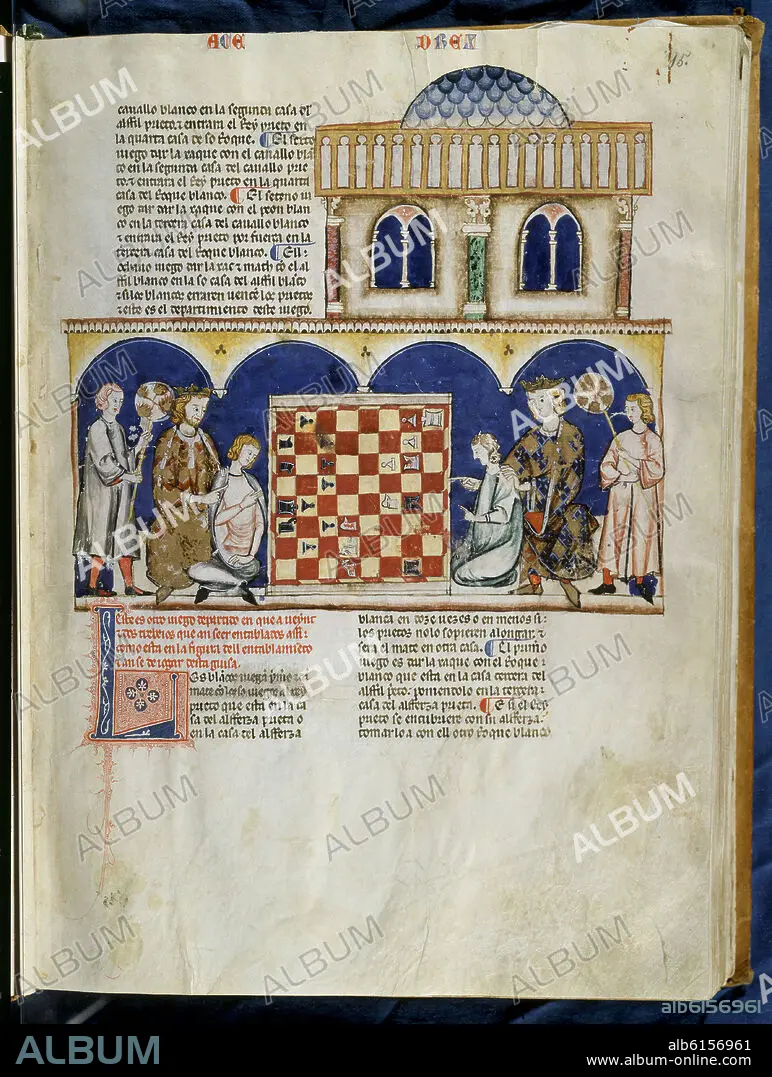 ACE DREX
45.
cauallo blanco en la segunda casa del
alffil prieto ⁊ entrara el Rey prieto en
la quarta casa de so Roque. ¶ El sesto
iuego dar la xaque con el cauallo blan
co en la segunda casa del cauallo prie
to. ⁊ entrara el Rey prieto en la quarta
casa del Roque blanco. ¶ El seteno iu
ego dar la xaque con el peon blan
co en la tercera casa del cauallo blanco
⁊ entrara el Rey prieto por fuerça en la
tercera casa del Roque blanco. ¶ Ell
ochauo iuego dar la xac ⁊ math con el al
ffil blanco en la so casa del alffil blanco
⁊ si los blancos erraren uencen los prietos
⁊ este es el departimiento deste iuego.
Este es otro iuego departido en que a ueynt
⁊ dos trebeios que an seer entablados assi
como estan en la figura dell entablamiento
⁊ an se de iogar desta guisa.
Los blancos iuegan primero ⁊
prieto que esta en la ca
sa del alfferza prieta o
en la casa del alfferza
blanca en doze uezes o en menos si
los prietos nolo sopieren alongar. ⁊
sera el mate en otra casa. ¶ El primero
iuego es dar la xaque con el Roque
blanco que esta en la casa tercera del
alffil prieto. poniendolo en la tercera
casa del alfferza prieta. ¶ E si el Rey
prieto se encubriere con su alfferza.
tomarlo a con ell otro Roque blanco
ALBUM
alb6156961
ALBUM
alb6156961
www.album-online.com